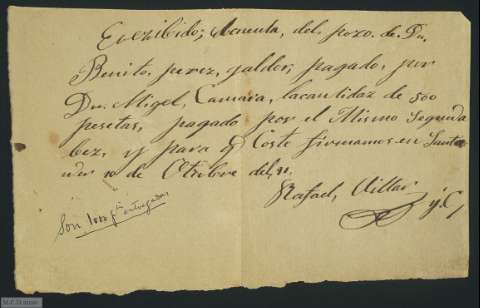 E recibido; Acuenta, del pozo. de. Dn.
Benito. perez, galdos; pagado, por
Dn. Migel, Camara, lacantidaz de 500
pesetas, pagado por el Mismo Segunda
bez, y para q Coste firmamos en Santa
der 10 de Otubre del,
Rafael, Villar
y. C
Son 1000 pts entregadas